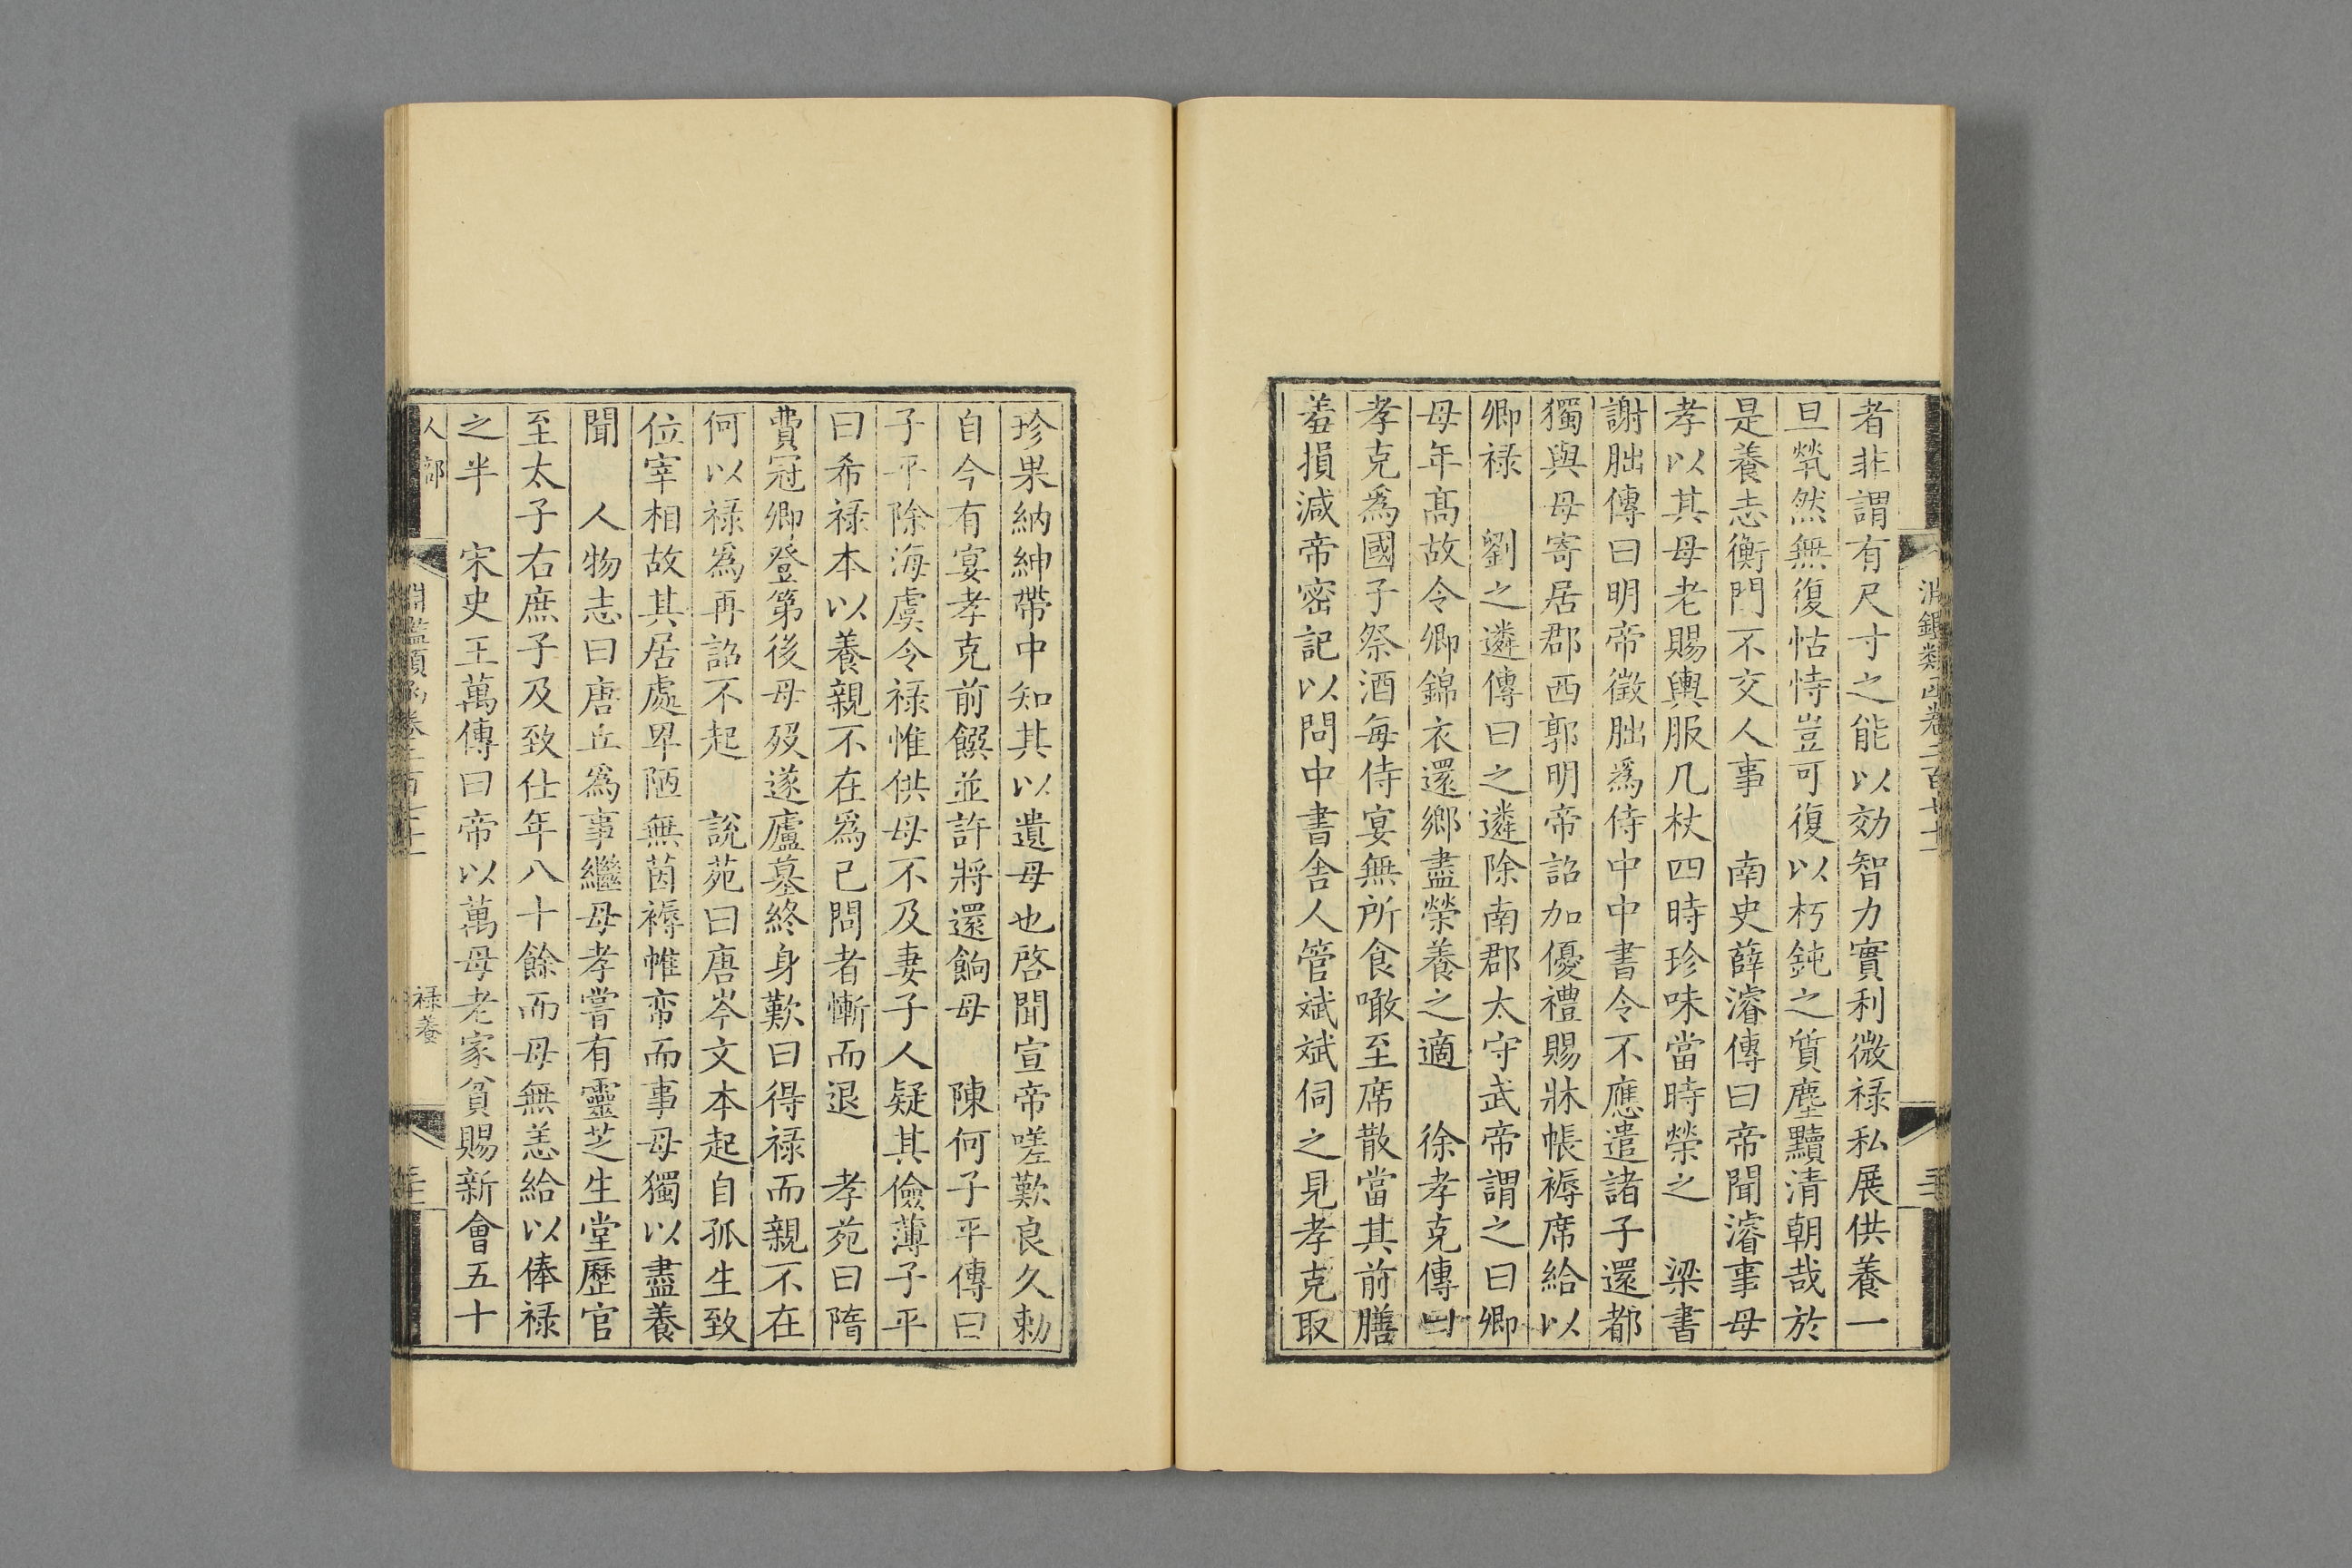 者非謂有尺寸之能以効智力實利微禄私展供養一
旦煢然無復怙恃豈可復以朽鈍之質塵黷清朝哉於
是養志衡門不交人事　南史薛濬傳曰帝聞濬事母
孝以其母老賜輿服几杖四時珍味當時榮之　梁書
謝朏傳曰明帝徵朏爲侍中中書令不應遣諸子還都
獨與母寄居郡西郭明帝詔加優禮賜牀帳褥席給以
卿禄　劉之遴傳曰之遴除南郡太守武帝謂之曰卿
母年髙故令卿錦衣還鄉盡榮養之適　徐孝克傳曰
孝克爲國子祭酒每侍宴無所食噉至席散當其前膳
羞損減帝密記以問中書舎人管斌斌伺之見孝克取
珍果納紳帶中知其以遺母也啓聞宣帝嗟歎良久勅
自今有宴孝克前饌並許將還餉母　陳何子平傳曰
子平除海虞令禄惟供母不及妻子人疑其儉薄子平
曰希禄本以養親不在爲己問者慚而退　孝苑曰隋
費冠卿登第後母歿遂廬墓終身歎曰得禄而親不在
何以禄爲再詔不起　說苑曰唐岑文本起自孤生致
位宰相故其居處卑陋無茵褥帷帟而事母獨以盡養
聞　人物志曰唐丘爲事繼母孝嘗有靈芝生堂歷官
至太子右庶子及致仕年八十餘而母無恙給以俸禄
之半　宋史王萬傳曰帝以萬母老家貧賜新會五十
人部
禄養